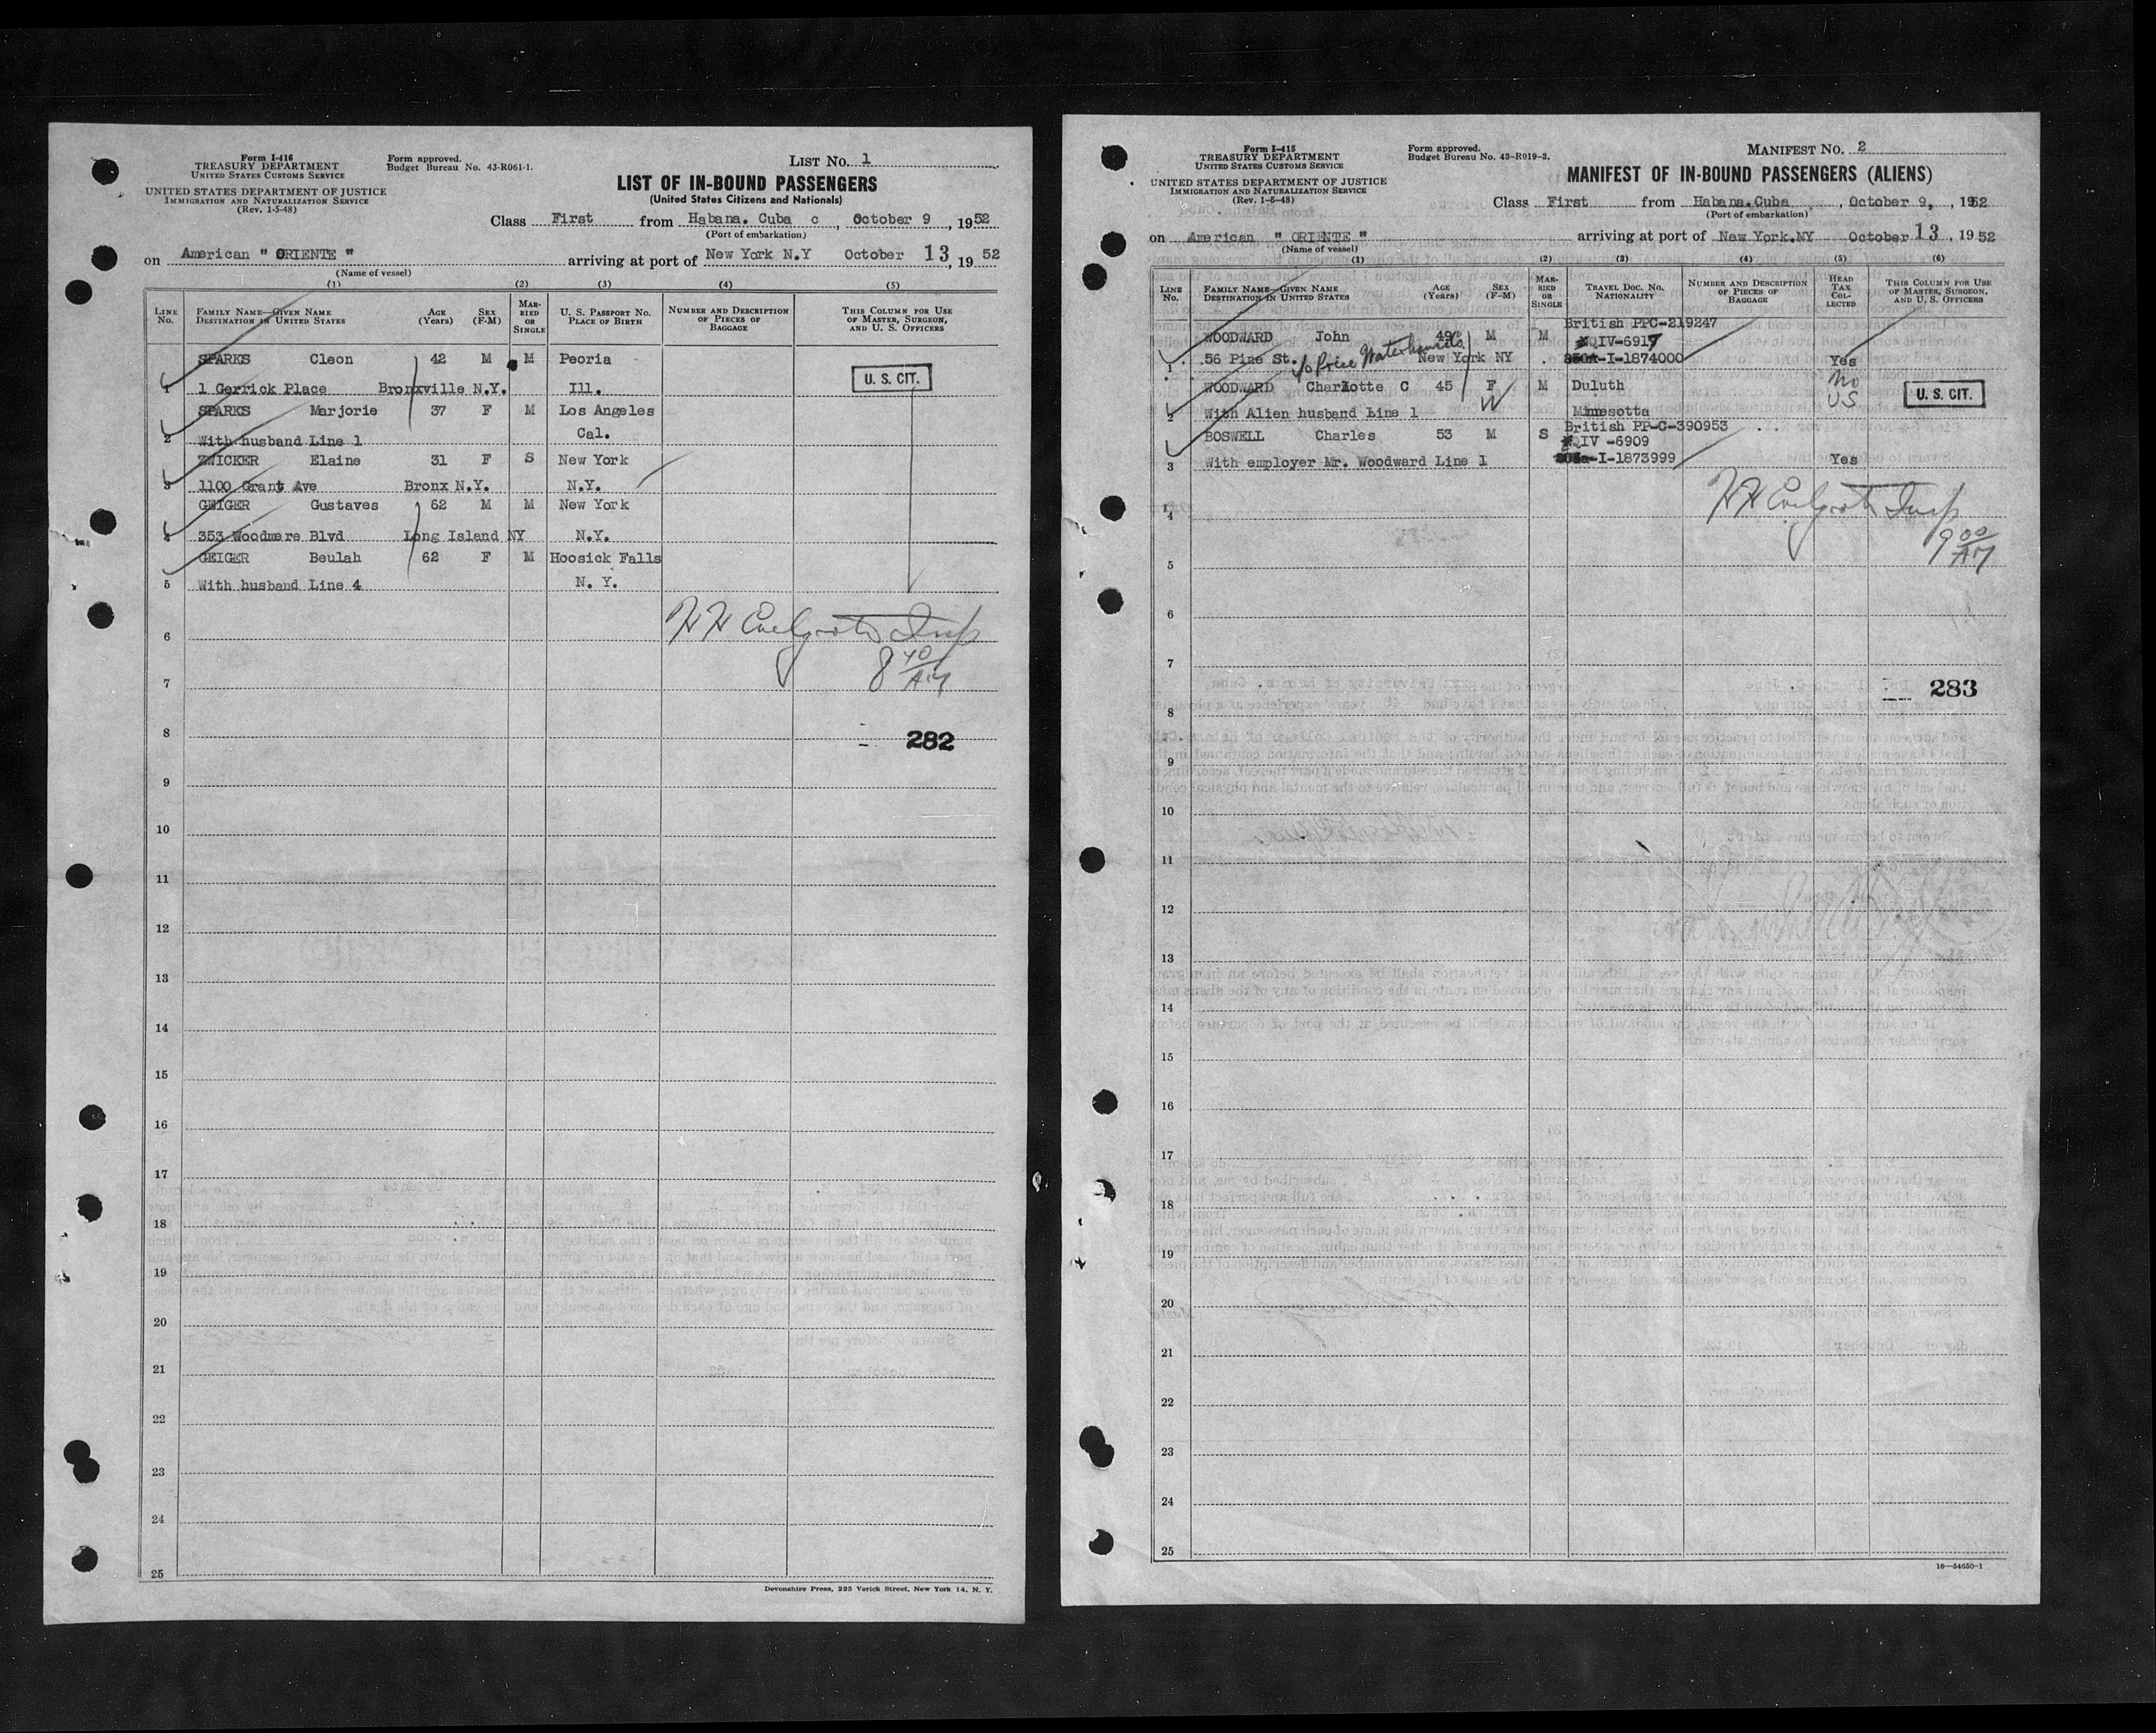 Form I-416
TREASURY DEPARTMENT
UNITED STATES CUSTOMS SERVICE
UNITED STATES DEPARTMENT OF JUSTICE
IMMIGRATION AND NATURALIZATION SERVICE
(Rev. 1-5-48)
Form approved.
Budget Bureau No. 43-R061-1.
LIST No. 1
LIST OF IN-BOUND PASSENGERS
(United States Citizens and Nationals)
Class First from Habana. Cuba c, October 9, 1952
(Port of embarkation)
on American " ORIENTE " arriving at port of New York N.Y October 13, 1952
(Name of vessel)
(1) (2) (3) (4) (5)
LINE No. FAMILY NAME—GIVEN NAME DESTINATION IN UNITED STATES AGE (Years) SEX (F-M) MARRIED OR SINGLE U. S. PASSPORT No. PLACE OF BIRTH NUMBER AND DESCRIPTION OF PIECES OF BAGGAGE THIS COLUMN FOR USE OF MASTER, SURGEON, AND U. S. OFFICERS
SPARKS Cleon 42 M M Peoria
1 1 Gerrick Place Bronxville N.Y. Ill. U. S. CIT.
SPARKS Marjorie 37 F M Los Angeles
2 With husband Line 1 Cal.
ZWICKER Elaine 31 F S New York
3 1100 Grant Ave Bronx N.Y. N.Y.
GEIGER Gustaves 62 M M New York
4 353 Woodmere Blvd Long Island NY N.Y.
GEIGER Beulah 62 F M Hoosick Falls
5 With husband Line 4 N. Y.
6
8 40 AM
7
8 282
9
10
11
12
13
14
15
16
17
18
19
20
21
22
23
24
25
Devonshire Press, 225 Varick Street, New York 14, N. Y.
Form I-415
TREASURY DEPARTMENT
UNITED STATES CUSTOMS SERVICE
UNITED STATES DEPARTMENT OF JUSTICE
IMMIGRATION AND NATURALIZATION SERVICE
(Rev. 1-5-48)
Form approved.
Budget Bureau No. 43-R019-3.
MANIFEST No. 2
MANIFEST OF IN-BOUND PASSENGERS (ALIENS)
Class First from Habana.Cuba, October 9,, 1952
(Port of embarkation)
on American " ORIENTE " arriving at port of New York.NY October 13, 1952
(Name of vessel)
(1) (2) (3) (4) (5) (6)
LINE No. FAMILY NAME—GIVEN NAME DESTINATION IN UNITED STATES AGE (Years) SEX (F-M) MARRIED OR SINGLE TRAVEL DOC. No. NATIONALITY NUMBER AND DESCRIPTION OF PIECES OF BAGGAGE HEAD TAX COLLECTED THIS COLUMN FOR USE OF MASTER, SURGEON, AND U. S. OFFICERS
British PPC-219247
WOODWARD John 49 M M QIV-6917
1 56 Pine St. c/o Price Waterhouse New York NY I-1874000 Yes
WOODWARD Charlotte C 45 F M Duluth No
2 With Alien husband Line 1 W Minnesotta US U. S. CIT.
British PP-C-390953
BOSWELL Charles 53 M S QIV -6909
3 With employer Mr. Woodward Line 1 I-1873999 Yes
4
9 00 AM
5
6
7
283
8
9
10
11
12
13
14
15
16
17
18
19
20
21
22
23
24
25
16—54650-1